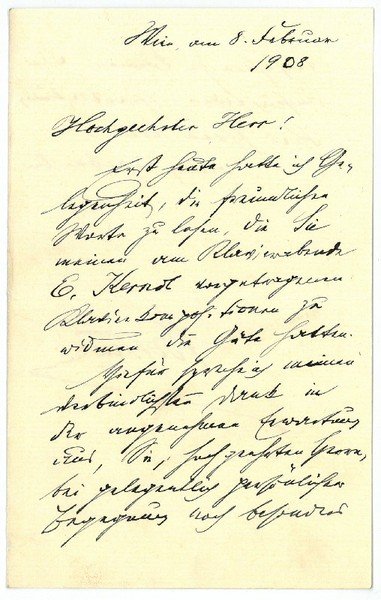 Wien, am 8. Februar
1908
Hochgeehrter Herr!
Erst heute hatte ich Ge-
legenheit, die freundlichen
Worte zu lesen, die Sie
meinen am Klavierabende
E. Kerndl vorgetragenen
Klavierkompositionen zu
widmen die Güte hatten.
Hiefür spreche ich meinen
verbindlichsten Dank in
der angenehmen Erwartung
aus, Sie, hochgeehrter Herr,
bei gelegentlich persönlicher
Begegnung noch besonders